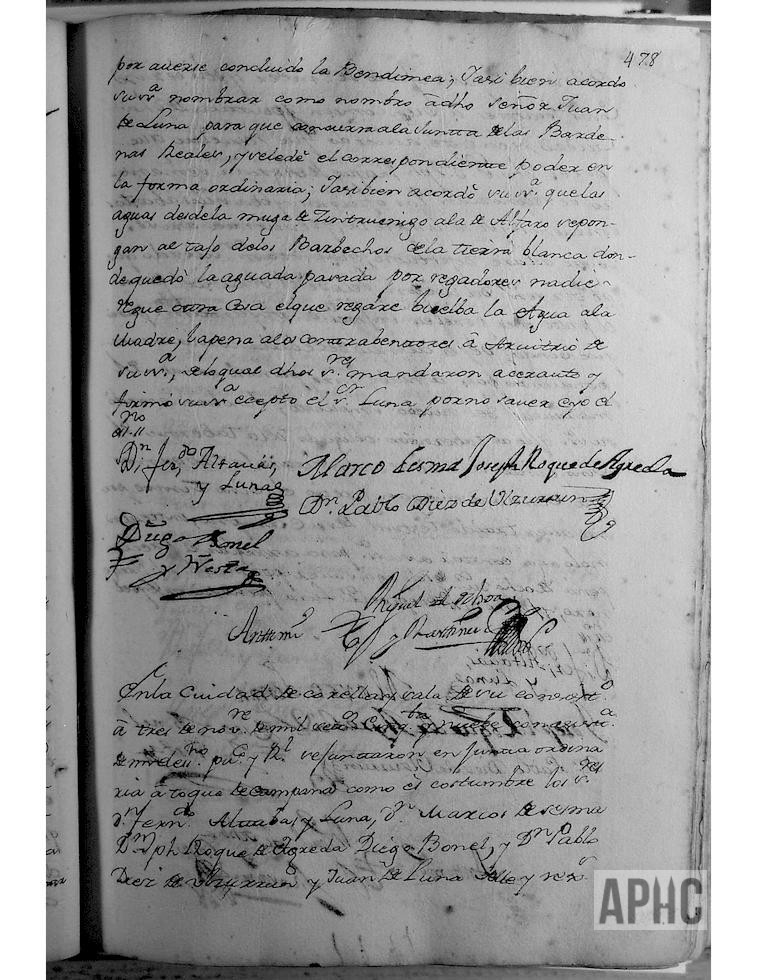 478
por averse concluido la Bendimea; Tasi bien acordo
su sª nombrar como nombro â dho señor Juan
de Luna para que concurra ala Juntta de las Barde-
nas Reales, y sele dè el correspondiente poder en
la forma ordinaria; Tasi bien acordò su sª. que las
aguas desde la muga de Zintruenigo ala de Alfaro se pon-
gan al taso delos Barbechos de la tierra blanca don-
de quedò la aguada parada por regadores nadie
riegue otra Cosa el que regàre buelba la Agua ala
Madre, la pena a los contrabentores â Arvitrio de
su sª, de lo qual dhos sres. mandaron acer auto y
firmó su sª ecepto el sr. Luna por no saver e yo el
Dn. Ferdo Altavàs,
y Luna
Marco Lesma Joseph Roque de Agreda
Dn. Pablo Diez de Ulzurrun
Diego Bonel
y Vesta
Miguel de Ochoa
Antemi y Martinez
En la Ciudad de Corella y sala de su
â tres de nove. de mil setos. y nueve con asista.
de mi el essno. puco. y Rl. se junttaron en juntta ordina
ria â toque de campana como es costumbre los sres.
dn. Ferndo. Altabàs, y Luna, dn. Marcos de Sesma
Dn. Jph Roque de Agreda Diego Bonel, y Dn. Pablo
Diez de Ulzurrun y Juan de Luna Alle y rexs
APHC